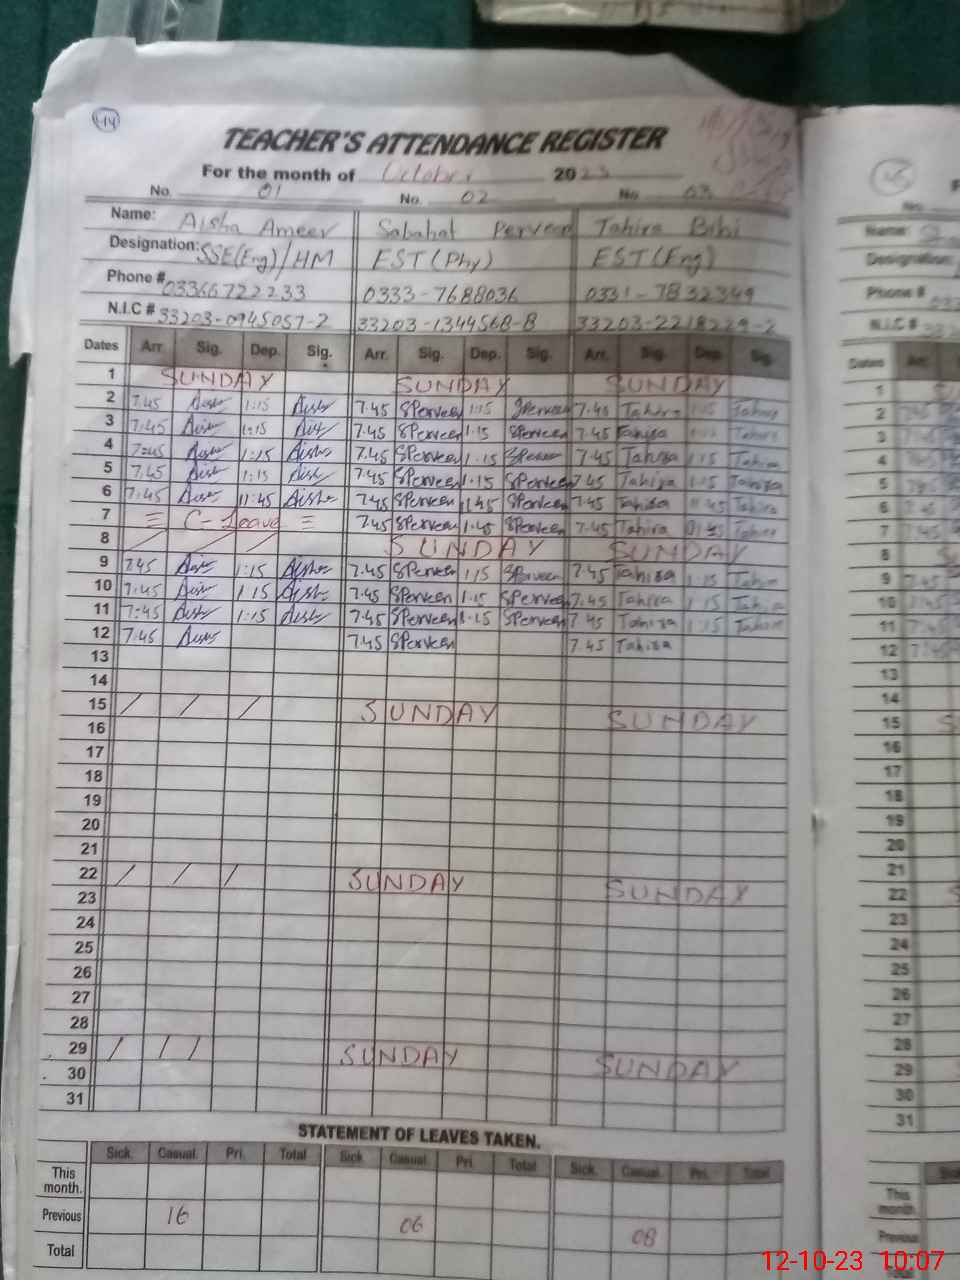 44
TEACHER'S ATTENDANCE REGISTER
For the month of October 2023
No. 01 No. 02 No 03
Name: Aisha Ameer Sabahat Perveen Tahira Bibi
Designation: SSE(Eng)/HM EST(Phy) EST(Eng)
Phone # 03366722233 0333-7688036 0331-7832349
N.I.C # 33203-0945057-2 33203-1344568-8 33203-2218229-2
Dates Arr. Sig. Dep. Sig. Arr. Sig. Dep. Sig. Arr. Sig. Dep. Sig.
1 SUNDAY SUNDAY SUNDAY
2 7.45 Aisha 1:15 Aisha 7.45 SPerveen 1:15 SPerveen 7.45 Tahira 1:15 Tahira
3 7:45 Aisha 1:15 7.45 SPerveen 1.15 SPerveen 7.45 Tahira Tahira
4 7:45 Aisha 1:15 Aisha 7.45 SPerveen 1.15 SPerveen 7.45 Tahira 1:15 Tahira
5 7.45 Aisha 1:15 Aisha 7.45 SPerveen 1.15 SPerveen 7.45 Tahira 1:15 Tahira
6 7:45 Aisha 11:45 Aisha 7.45 SPerveen SPerveen 7.45 Tahira 11:45 Tahira
7 C-Leave 7.45 SPerveen 1.45 SPerveen 7.45 Tahira Tahira
8 / / / SUNDAY SUNDAY
9 7.45 Aisha 1:15 Aisha 7.45 SPerveen 1.15 SPerveen 7.45 Tahira 1:15 Tahira
10 7:45 Aisha 1:15 Aisha 7.45 SPerveen 1.15 SPerveen 7.45 Tahira 1:15 Tahira
11 7:45 Aisha 1:15 Aisha 7.45 SPerveen 1.15 SPerveen 7.45 Tahira 1:15 Tahira
12 7.45 Aisha 7.45 SPerveen 7.45 Tahira
13
14
15 / / / SUNDAY SUNDAY
16
17
18
19
20
21
22 / / / SUNDAY SUNDAY
23
24
25
26
27
28
29 / / / SUNDAY SUNDAY
30
31
STATEMENT OF LEAVES TAKEN.
Sick. Casual. Pri. Total Sick. Casual. Pri. Total Sick. Casual. Pri. Total
This month.
Previous 16 06 08
Total
No.
Name:
Designation:
Phone #
N.I.C #
Dates Arr.
1
2 7.45
3
4
5
6
7
8
9
10
11
12
13
14
15
16
17
18
19
20
21
22
23
24
25
26
27
28
29
30
31
This month.
Previous
Total
12-10-23 10:07